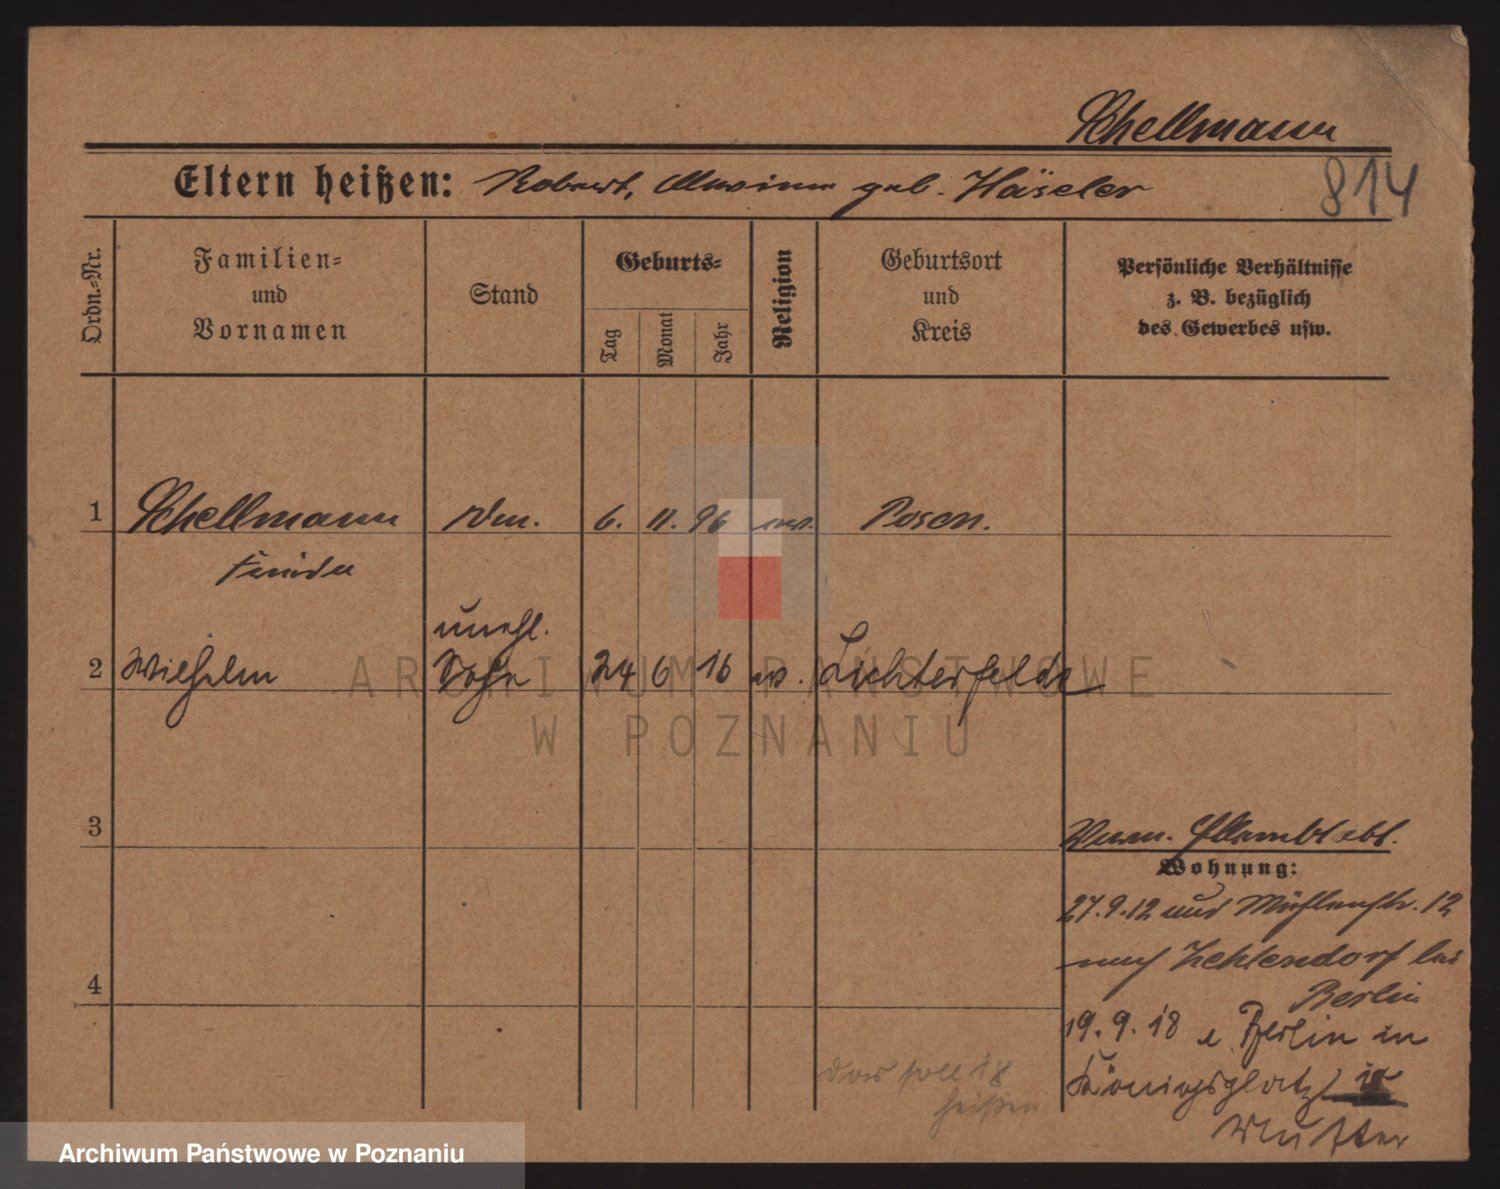 Schellmann
Eltern heißen: Robert, geb. Häseler
814
Ordn.-Nr.
Familien-
und
Vornamen
Stand
Geburts-
Tag
Monat
Jahr
Religion
Geburtsort
und
Kreis
Persönliche Verhältnisse
z. B. bezüglich
des Gewerbes usw.
1 Schellmann 6. 11. 96 Posen.
unehl.
2 Wilhelm Sohn 24 6 16 Lichterfelde
ARCHIWUM PAŃSTWOWE
W POZNANIU
3
Wohnung:
27.9.12 aus Mühlenstr. 12
nach Zehlendorf bei
Berlin
4
19. 9. 18 v. Berlin in
Königsplatz
Mutter
das soll 18
heißen
Archiwum Państwowe w Poznaniu